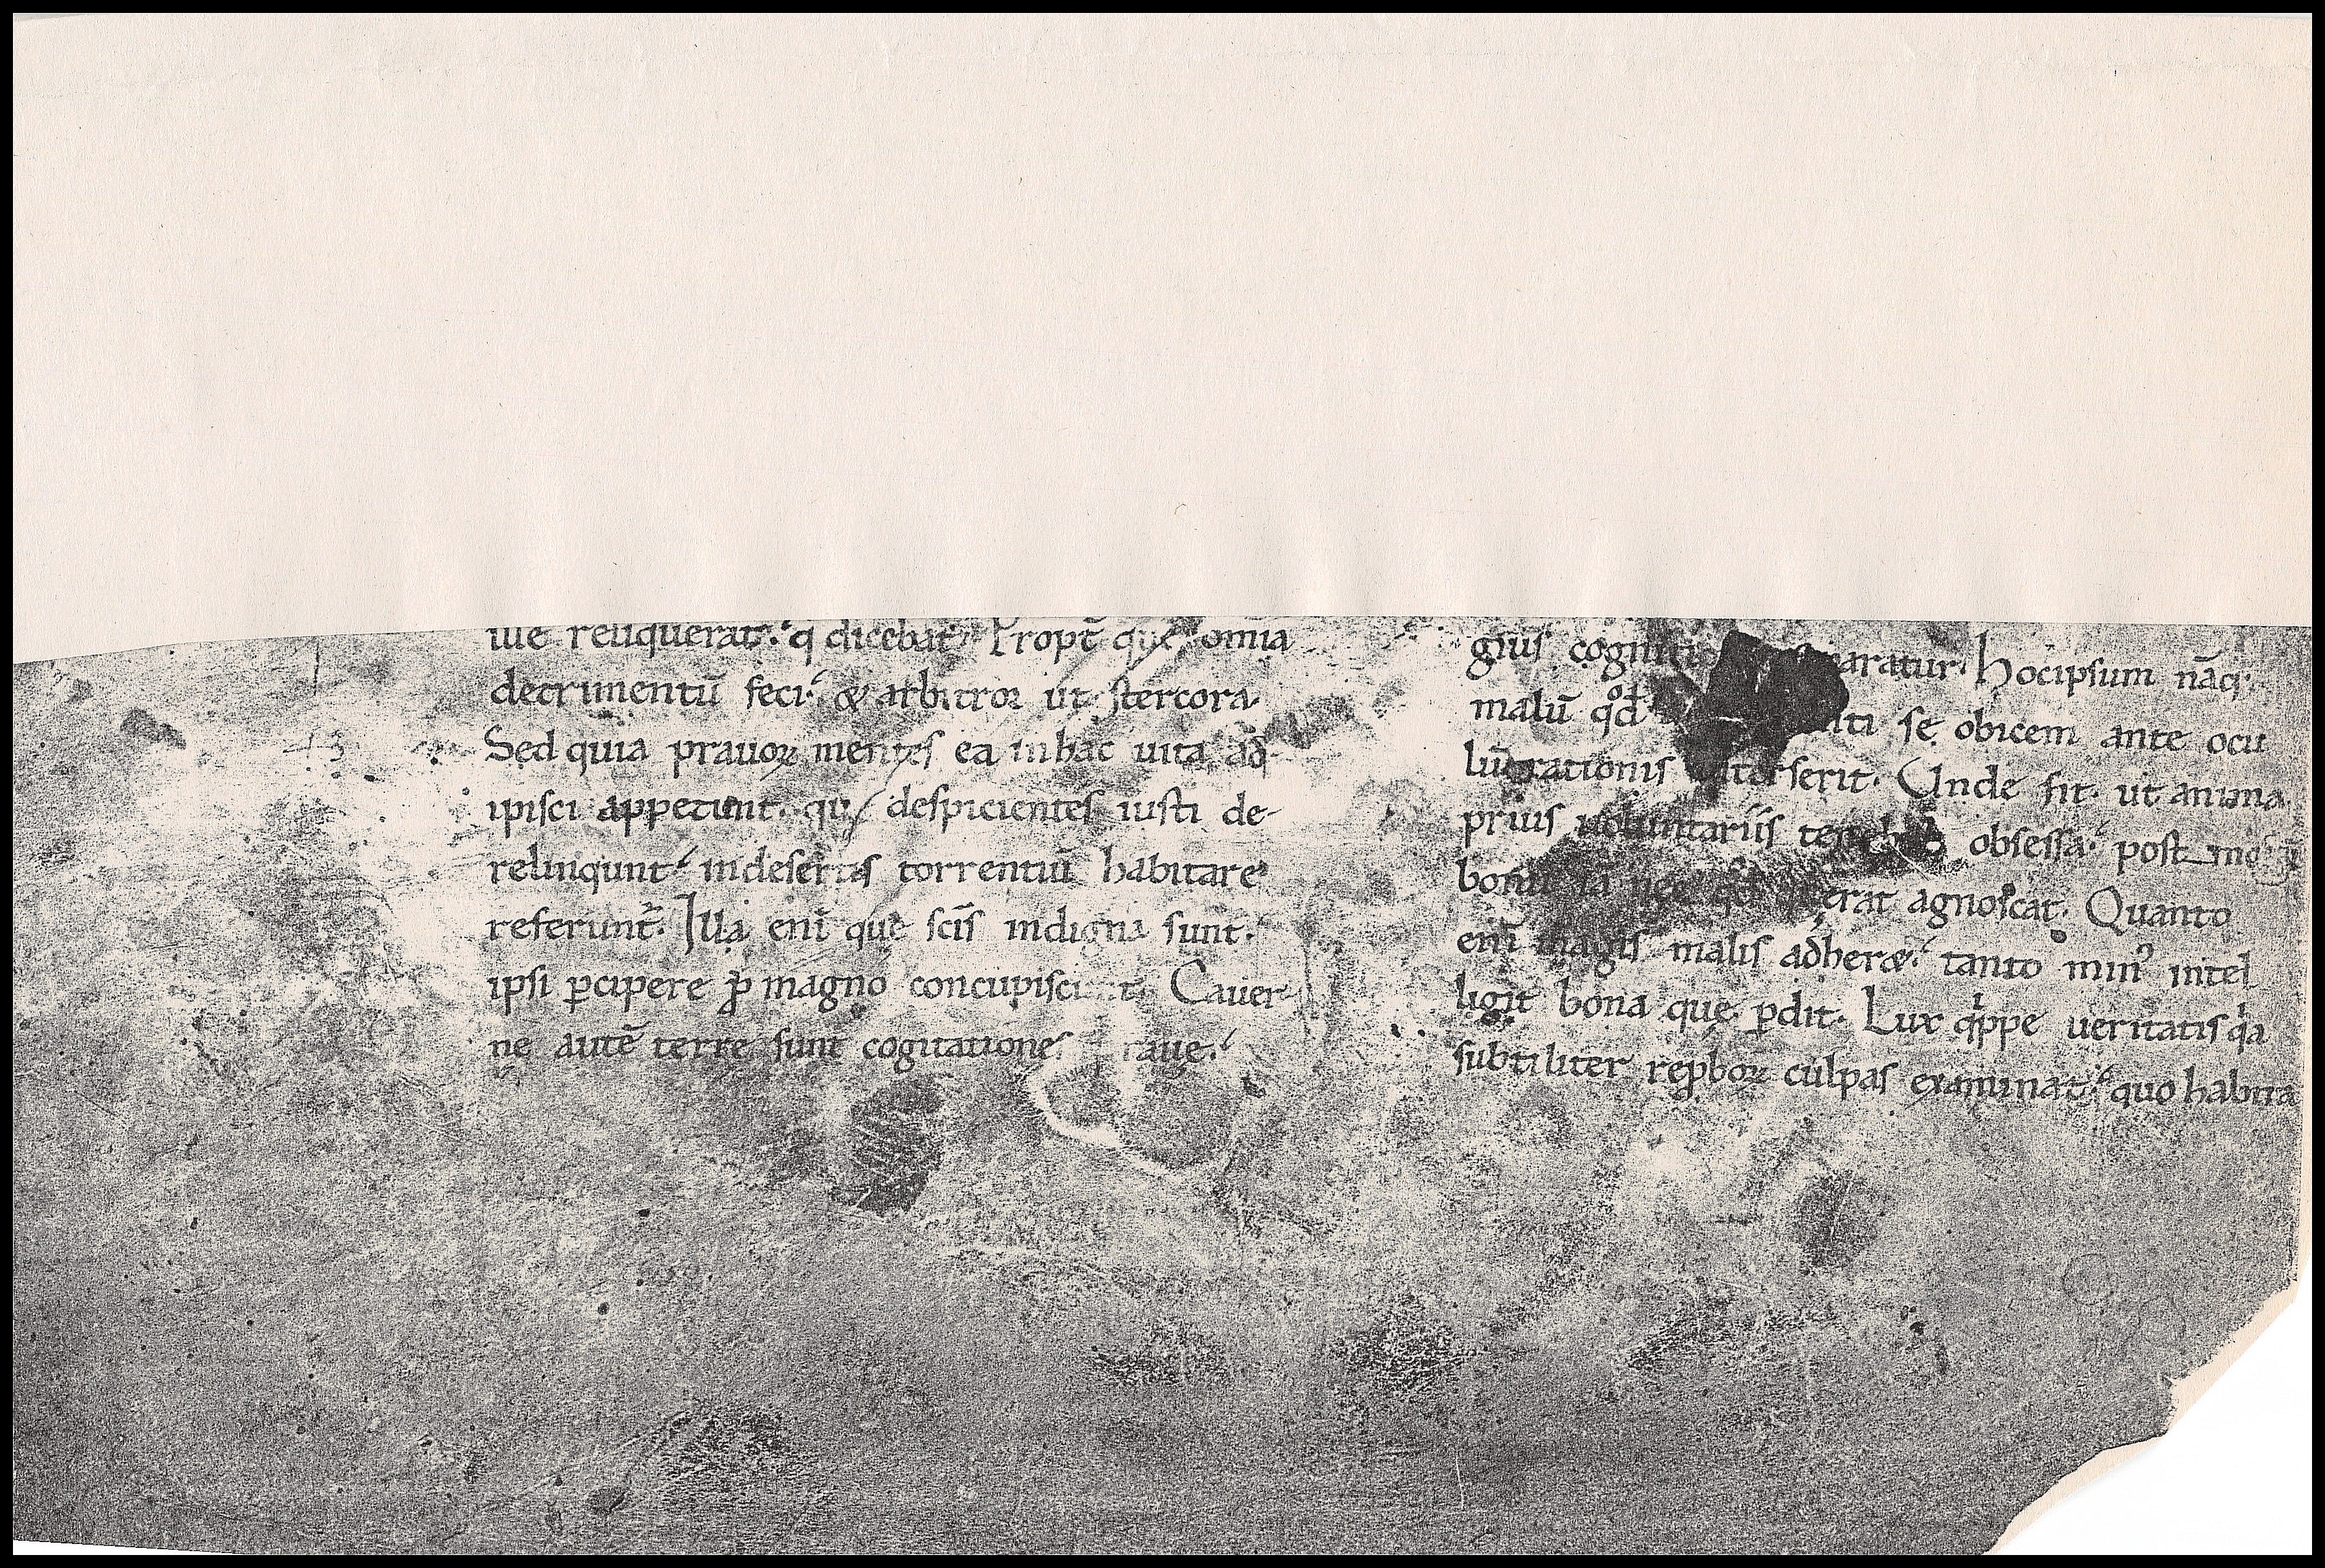 ille reliquerat. q dicebat. Propt̄ que omia
detrimentū feci. & arbitror ut stercora.
Sed quia prauoꝝ mentes ea in hac uita ad
ipisci appetunt. que despicientes iusti de-
relinqunt. in desertis torrentiū habitare
referunt̄. Illa eni que scīs indigna sunt.
ipsi ꝑcipere ꝓ magno concupiscunt. Cauer-
ne autē terre sunt cogitationes praue.
gius cogniti aratur. Hoc ipsum nāq;
malū qđ iti se obicem ante ocu
lū rationis interserit. Unde fit. ut anima
prius uoluntariis tenebris obsessa. post
bonū iā nec qđ querat agnoscat. Quanto
eni magis malis adheret. tanto min⁹ intel
ligit bona que ꝑdit. Lux qͥppe ueritatis qͥa
subtiliter reꝓboꝝ culpas examinat. quo habita